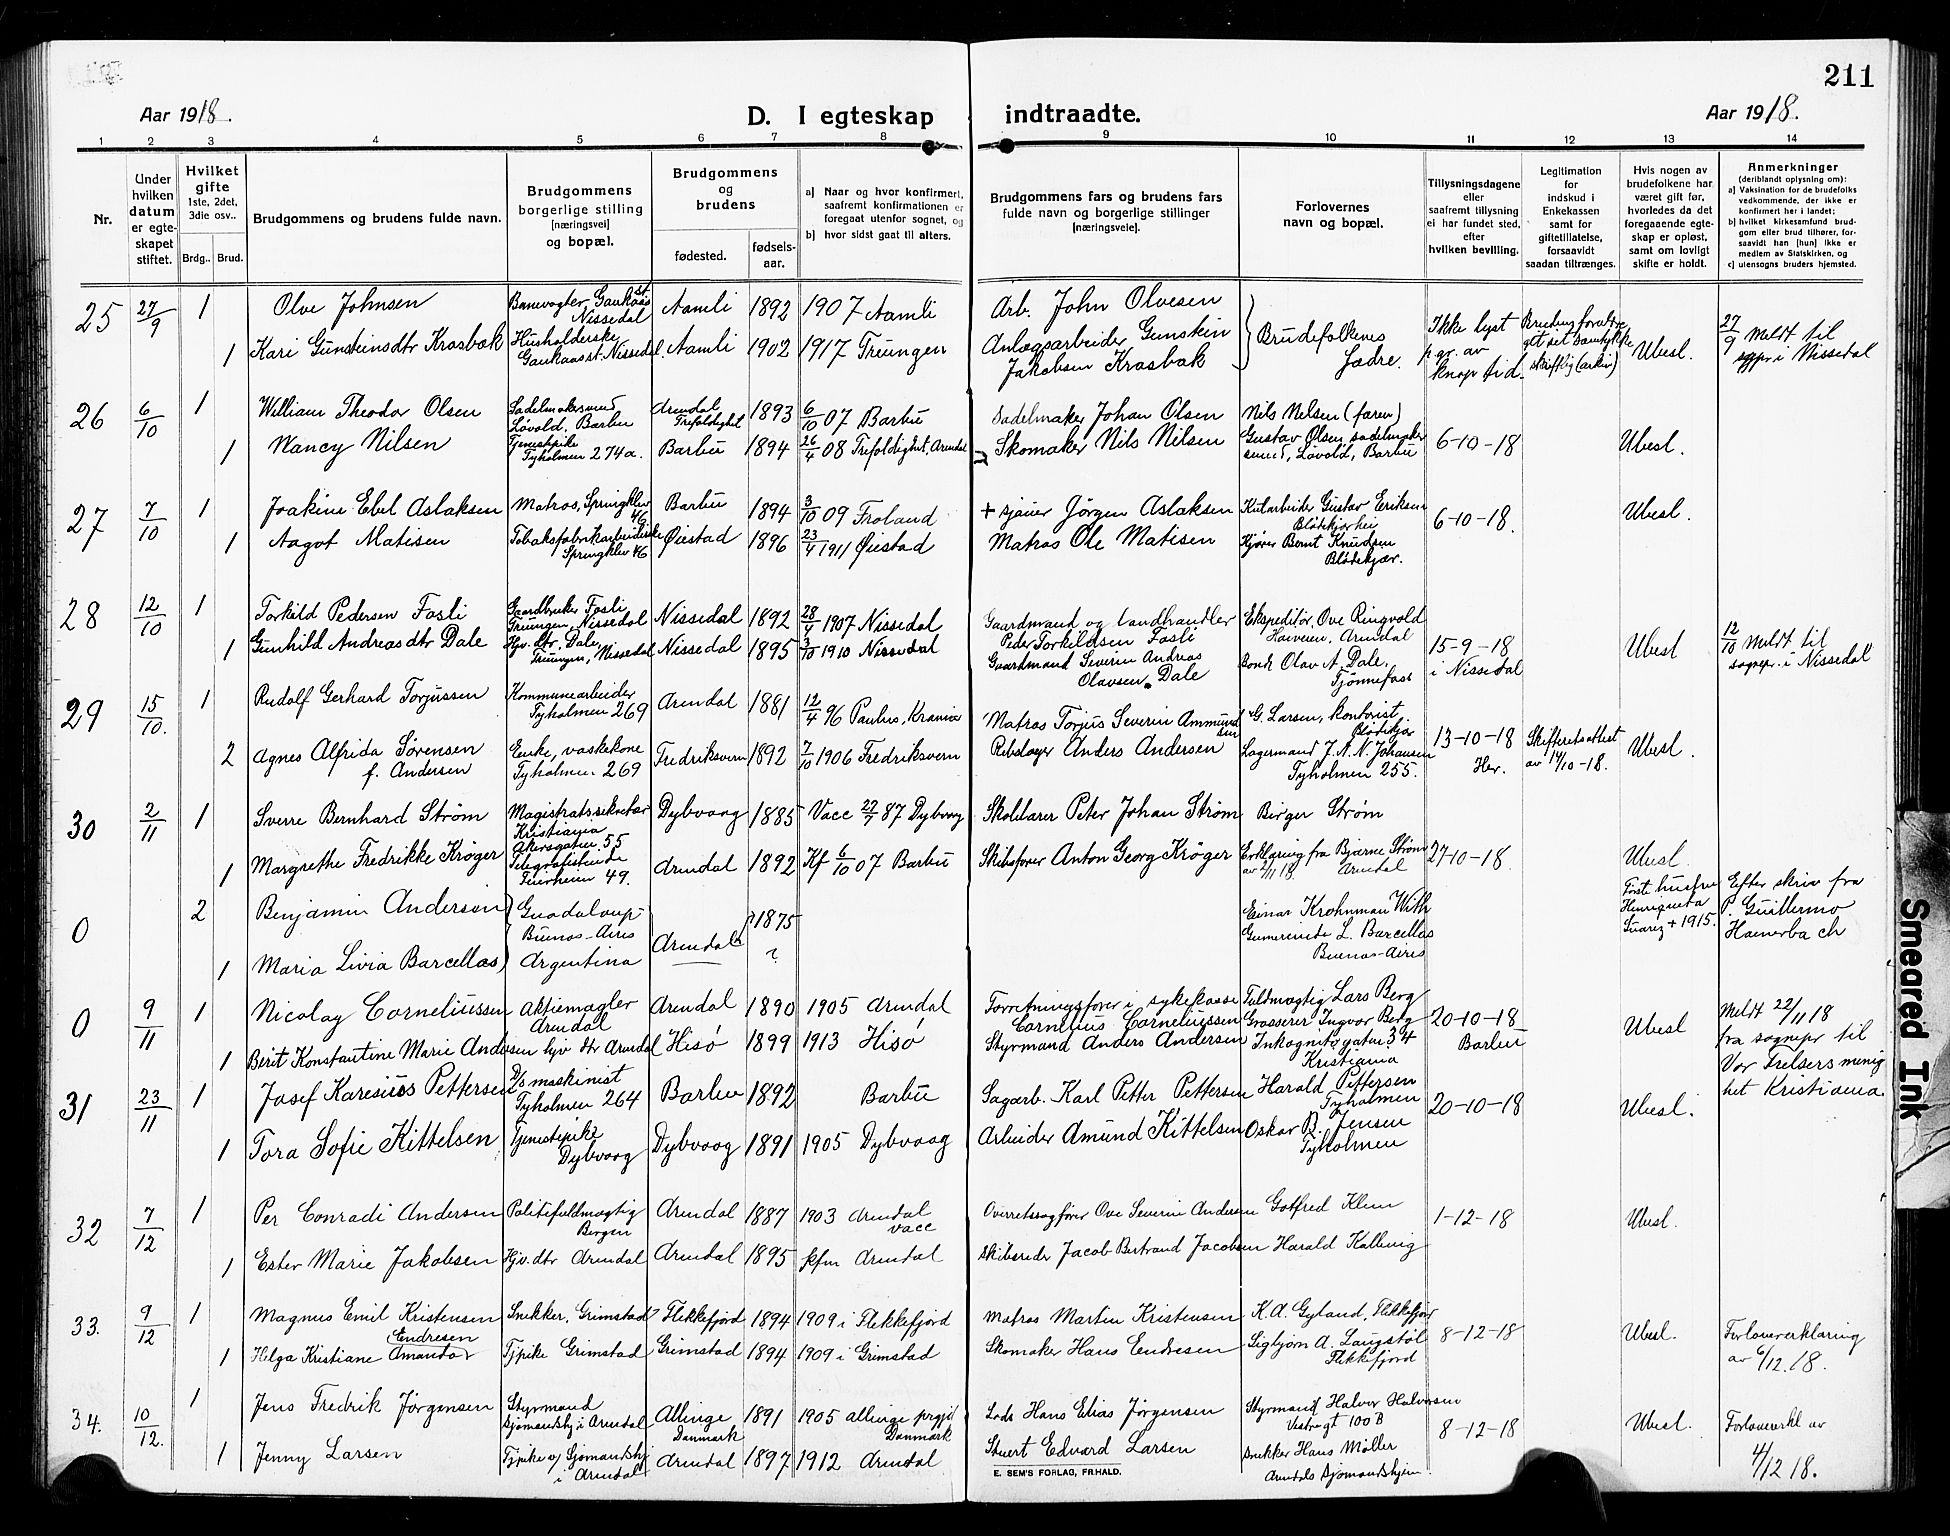 211
Aar 1918.
D. I egteskap indtraadte.
Aar 1918.
1 2 3 4 5 6 7 8 9 10 11 12 13 14
Nr.
Under hvilken datum er egteskapet stiftet.
Hvilket gifte 1ste, 2det, 3die osv..
Brdg.. Brud.
Brudgommens og brudens fulde navn.
Brudgommens borgerlige stilling [næringsvei] og bopæl.
Brudgommens og brudens
fødested. fødselsaar.
a) Naar og hvor konfirmert, saafremt konfirmationen er foregaat utenfor sognet, og
b) hvor sidst gaat til alters.
Brudgommens fars og brudens fars fulde navn og borgerlige stillinger [næringsveie].
Forlovernes navn og bopæl.
Tillysningsdagene eller saafremt tillysning ei har fundet sted, efter hvilken bevilling.
Legitimation for indskud i Enkekassen samt for giftetillatelse, forsaavidt saadan tiltrænges.
Hvis nogen av brudefolkene har været gift før, hvorledes da det foregaaende egteskap er opløst, samt om lovligt skifte er holdt.
Anmerkninger (deriblandt oplysning om): a) Vaksination for de brudefolks vedkommende, der ikke er konfirmert her i landet; b) hvilket kirkesamfund brudgom eller brud tilhører, forsaavidt han [hun] ikke er medlem av Statskirken, og c) utensogns bruders hjemsted.
25 27/9 1 Olve Johnsen Banevogter, Gaukaas st. Nissedal Aamli 1892 1907 Aamli Arb. John Olvesen
1 Kari Gunsteinsdtr Krosbak Husholderske Gaukaas st. Nissedal Aamli 1902 1917 Treungen Anlægsarbeider Gunstein Jakobsen Krosbak
Brudefolkenes fadre. Ikke lyst p. gr. av knap tid. skriftlig (arkiv) Ubesl. 27/9 Meldt til sogpr i Nissedal
26 6/10 1 William Theodor Olsen Sadelmakersvend Løvold, Barbu Arendal Trefoldighet 1893 6/10 07 Barbu Sadelmaker Johan Olsen Nils Nilsen (faren)
1 Nancy Nilsen Tjenestpike Tyholmen 274a. Barbu 1894 26/4 08 Trefoldighet, Arendal Skomaker Nils Nilsen Gustav Olsen, sadelmakersvend, Løvold, Barbu 6-10-18 Ubesl.
27 7/10 1 Joakim Ebel Aslaksen Matros, Springklev 46 Barbu 1894 3/10 09 Froland + sjauer Jørgen Aslaksen Kularbeider Gustav Eriksen Blødekjærhei 6-10-18. Ubesl.
1 Aagot Matisen Tobaksfabrikarbeiderske Springklev 46 Øiestad 1896 23/4 1911 Øiestad Matros Ole Matisen Kjører Bernt Knudsen Blødekjær.
28 12/10 1 Torkild Pedersen Fosli Gaardbruker Fosli Treungen, Nissedal Nissedal 1892 28/4 1907 Nissedal Gaardmand og landhandler Peder Torkildsen Fosli Ekspeditør, Ove Ringvold Havnen, Arendal
1 Gunhild Andreasdtr Dale Hjv. dtr, Dale, Treungen, Nissedal Nissedal 1895 3/10 1910 Nissedal Gaardmand Severin Andreas Olavsen Dale Olav A. Dale, Tjønnefoss 15-9-18 i Nissedal Ubesl 12/10 Meldt til sognepr. i Nissedal
29 15/10. 1 Rudolf Gerhard Torjussen Kommunearbeider Tyholmen 269 Arendal 1881 12/4 96 Paulus, Krania Matros Torjus Severin Ammundsen G. Larsen, kontorist Blødekjær
2 Agnes Alfrida Sørensen f. Andersen Enke, vaskekone Tyholmen 269 Fredriksvern 1892 7/10 1906 Fredriksvern Rebslager Anders Andersen Lagermand J. A. N. Johansen Tyholmen 255. 13-10-18 Her. Skifteretsattest av 14/10-18. Ubesl.
30 2/11 1 Sverre Bernhard Strøm Magistratssekretær Kristiania Akersgaten 55 Dybvaag 1885 Vacc 27/7 87 Dybvaag Skolelærer Peter Johan Strøm Birger Strøm
1 Margrethe Fredrikke Krøger Telegrafistinde 49. Arendal 1892 Kf 6/10 07 Barbu Skibsfører Anton Georg Krøger Erklæring fra Bjarne Strøm av 2/11 18 Arendal 27-10-18. Ubesl.
0 2 Benjamin Andersen Guadaloup- Buenos-Aires Argentina Arendal 1875 Einar Krohnman With Første hustru Henriqueta Suarez + 1915. Efter skriv fra P. Guillermo
1 Maria Livia Barcellos ? L. Barcellos Buenos-Aires
0 9/11 1 Nicolay Corneliussen Aktiemægler Arendal Arendal 1890 1905 Arendal Forretningsfører i sykekasse Cornelius Corneliussen Fuldmægtig Lars Berg
1 Berit Konstantine Marie Andersen hjv dtr Arendal Hisø 1899 1913 Hisø Styrmand Anders Andersen Grosserer Ingvar Berg Inkognitogaten 34 Kristiania 20-10-18 Barbu Ubesl Meldt 22/11 18 fra sognepr til Vor Frelsers menighet Kristiania.
31 23/11 1 Josef Karesius Pettersen D/s maskinist Tyholmen 264 Barbu 1892 Barbu Sagarb. Karl Petter Pettersen Harald Pettersen Tyholmen 20-10-18 Ubesl.
1 Tora Sofie Kittelsen Tjenestepike Dybvaag Dybvaag 1891 1905 Dybvaag Arbeider Amund Kittelsen Oskar B. Jensen Tyholmen
32 7/12 1 Per Conradi Andersen Politifuldmægtig Bergen Arendal 1887 1903 Arendal vacc Overretssagfører Ove Severin Andersen Gotfred Klem 1-12-18 Ubesl.
1 Ester Marie Jakobsen Hjv. dtr Arendal Arendal 1895 kfm Arendal Skibsreder Jacob Bertrand Jacobsen Harald Kallevig
33. 9/12 1 Magnus Emil Kristensen Snekker, Grimstad Flekkefjord 1894 1909 i Flekkefjord Matros Martin Kristensen K. A. Gyland, Flekkefjord
1 Helga Kristiane Amanda Endresen Tjpike Grimstad Grimstad 1894 1909 i Grimstad Skomaker Hans Endresen Sigbjørn A. Laugstøl Flekkefjord 8-12-18 Ubesl. Forlovererklæring av 6/12 18.
34. 10/12. 1 Jens Fredrik Jørgensen Styrmand Sjømandshj i Arendal Allinge Danmark 1891 1905 Allinge prgjd Danmark Lods Hans Elias Jørgensen Styrmand Halvor Halvorsen Vestregt 100 B
1 Jenny Larsen Tjpike v/ Sjømandshj i Arendal Arendal 1897 1912 Arendal Stuert Edvard Larsen Snekker Hans Møller Arendals Sjømandshjem. 8-12-18 Ubesl. Forlovererkl av 4/12 18.
E. SEM'S FORLAG, FR.HALD.
Smeared Ink